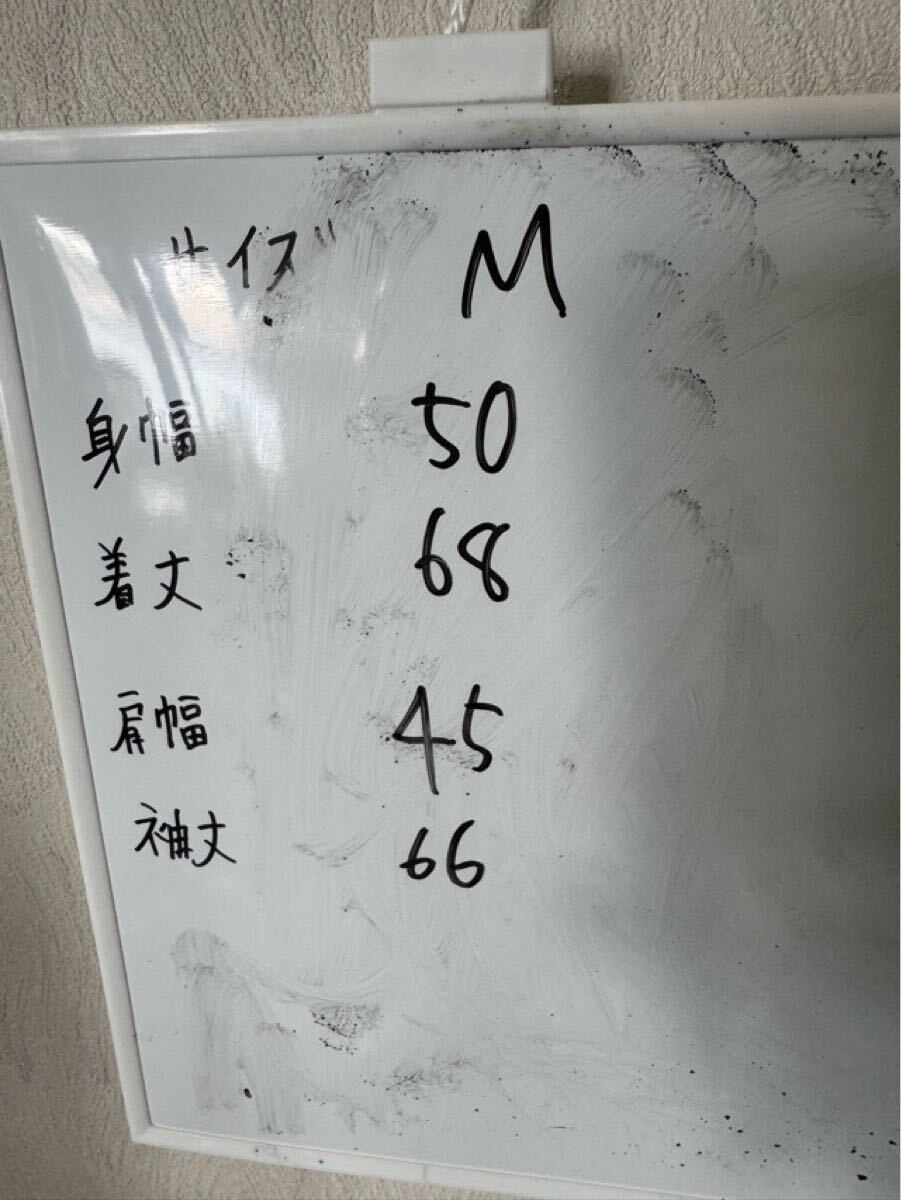 サイズ M
身幅 50
着丈 68
肩幅 45
袖丈 66